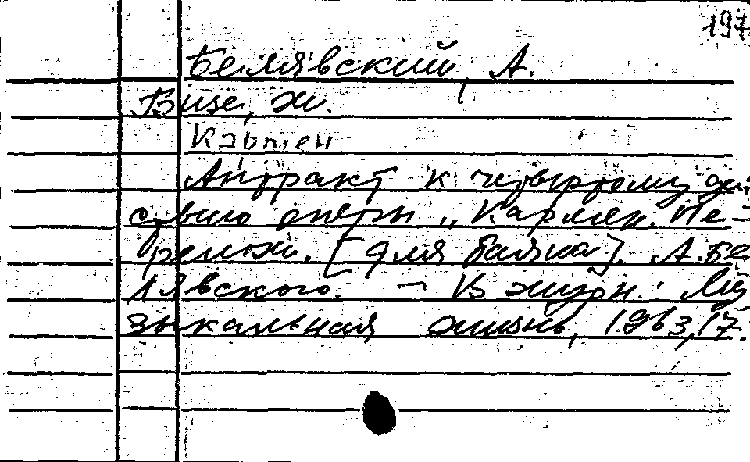 197
Белявский, А.
Бизе, Ж.
Кармен
Антракт к четвертому дей
ствию оперы „Кармен. Пе-
релож. [для баяна]. А. Бе
лявского. — В журн.: Му
зыкальная жизнь, 1963, 17.